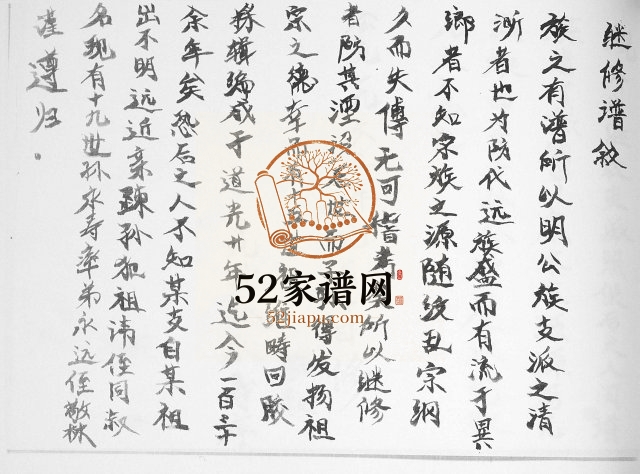 继修谱敘
族之有谱所以明公族支派之清
淅者也为防代远族盛而有流于異
鄉者不知宗族之源随纹乱宗纲
久而失傅无可稽考所以继修
者防其湮 子 得发扬祖
宗之德幸 時回
辑编成于道光廿年迄今一百三十
余年矣恐后之人不知某支自某祖
出不明远近亲疎孙犯祖讳侄同叔
名现有十九世孙永寿率弟永远侄
谨遵归.
52家谱网
52jiapu.com